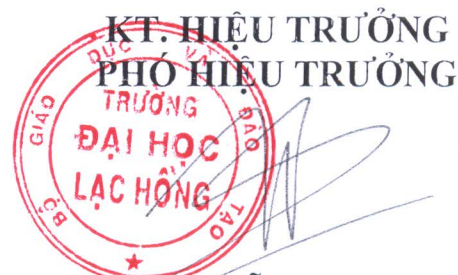 KT. HIỆU TRƯỞNG
PHÓ HIỆU TRƯỞNG
BỘ GIÁO DỤC VÀ ĐÀO TẠO
TRƯỜNG
ĐẠI HỌC
LẠC HỒNG